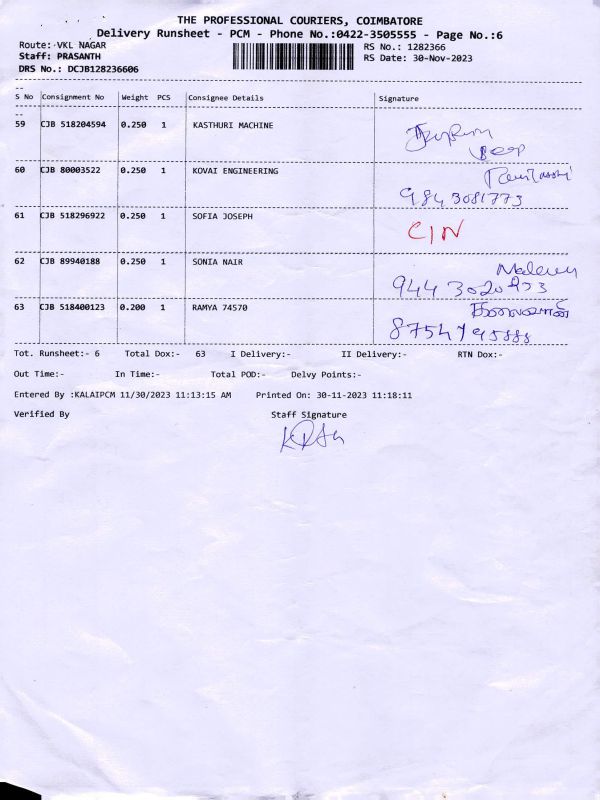 THE PROFESSIONAL COURIERS, COIMBATORE
Delivery Runsheet - PCM - Phone No.:0422-3505555 - Page No.:6
Route: VKL NAGAR
RS No.: 1282366
Staff: PRASANTH
RS Date: 30-Nov-2023
DRS No.: DCJB128236606
S No Consignment No Weight PCS Consignee Details Signature
59 CJB 518204594 0.250 1 KASTHURI MACHINE
60 CJB 80003522 0.250 1 KOVAI ENGINEERING
9843081773
61 CJB 518296922 0.250 1 SOFIA JOSEPH C/N
62 CJB 89940188 0.250 1 SONIA NAIR
63 CJB 518400123 0.200 1 RAMYA 74570
Tot. Runsheet:- 6 Total Dox:- 63 I Delivery:- II Delivery:- RTN Dox:-
Out Time:- In Time:- Total POD:- Delvy Points:-
Entered By :KALAIPCM 11/30/2023 11:13:15 AM Printed On: 30-11-2023 11:18:11
Verified By Staff Signature